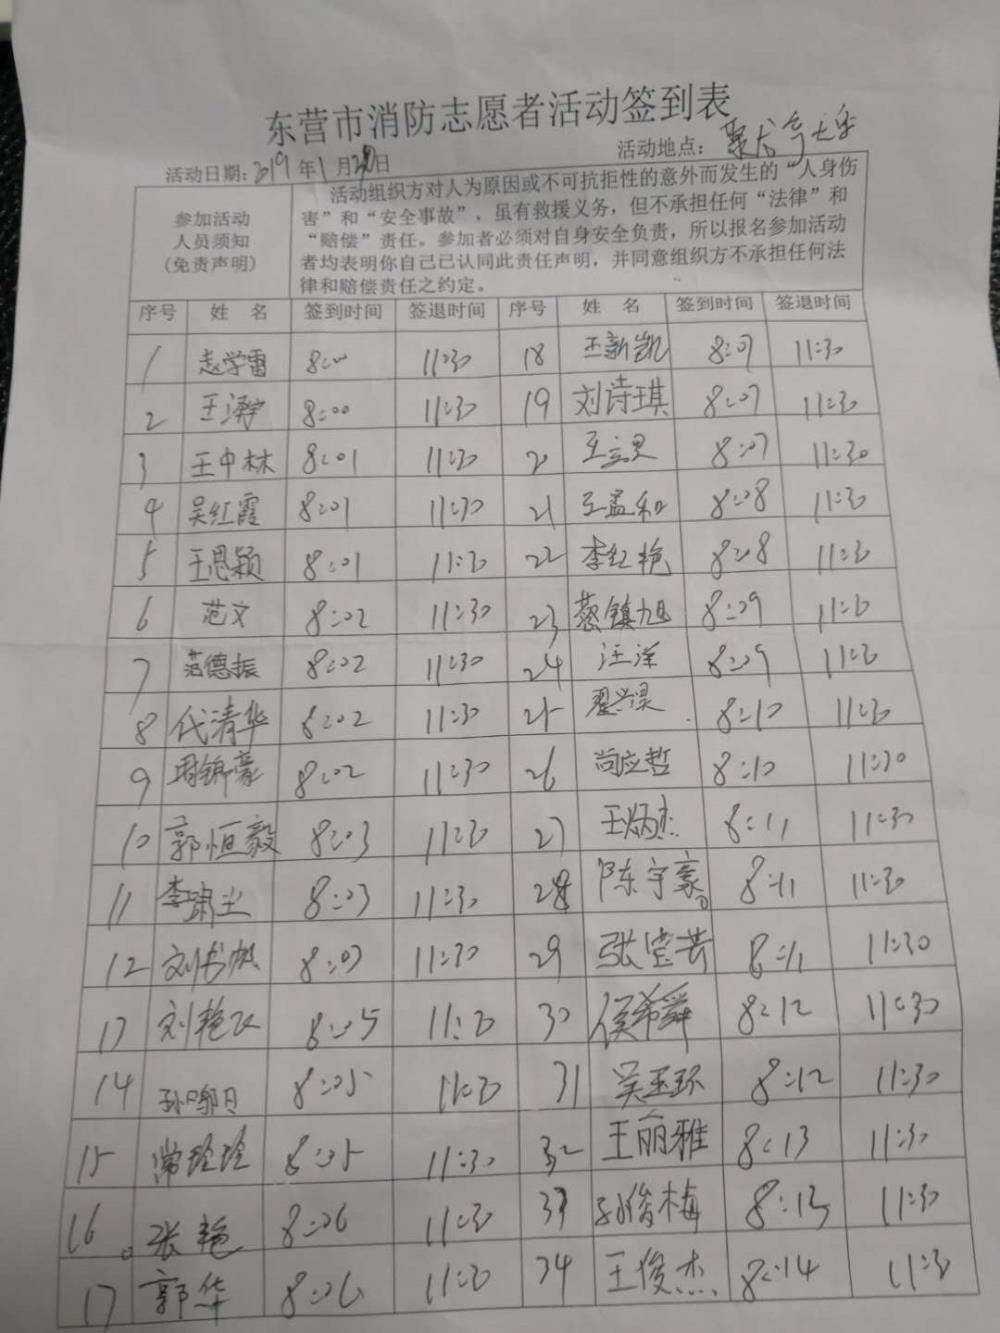 东营市消防志愿者活动签到表
活动日期：2019年1月28日 活动地点：
参加活动
人员须知
(免责声明)
活动组织方对人为原因或不可抗拒性的意外而发生的“人身伤
害”和“安全事故”，虽有救援义务，但不承担任何“法律”和
“赔偿”责任。参加者必须对自身安全负责，所以报名参加活动
者均表明你自己已认同此责任声明，并同意组织方不承担任何法
律和赔偿责任之约定。
序号 姓 名 签到时间 签退时间 序号 姓 名 签到时间 签退时间
1 志学雷 8:00 11:30 18 王新凯 8:07 11:30
2 王 8:00 11:30 19 刘诗琪 8:07 11:30
3 王中林 8:01 11:30 20 王立 8:07 11:30
4 吴红霞 8:01 11:30 21 王孟和 8:08 11:30
5 王思颖 8:01 11:30 22 李红艳 8:08 11:30
6 范文 8:02 11:30 23 镇旭 8:09 11:30
7 范德振 8:02 11:30 24 汪洋 8:09 11:30
8 代清华 8:02 11:30 25 翟兴 8:10 11:30
9 周锦豪 8:02 11:30 26 尚应哲 8:10 11:30
10 郭恒毅 8:03 11:30 27 王炳杰 8:11 11:30
11 李 8:03 11:30 28 陈宇豪 8:11 11:30
12 刘书帆 8:03 11:30 29 张莹芳 8:11 11:30
13 刘艳 8:05 11:30 30 侯希舜 8:12 11:30
14 孙 8:05 11:30 31 吴玉环 8:12 11:30
15 常玲玲 8:05 11:30 32 王丽雅 8:13 11:30
16 张艳 8:06 11:30 33 孙俊梅 8:13 11:30
17 郭华 8:06 11:30 34 王俊杰 8:14 11:30